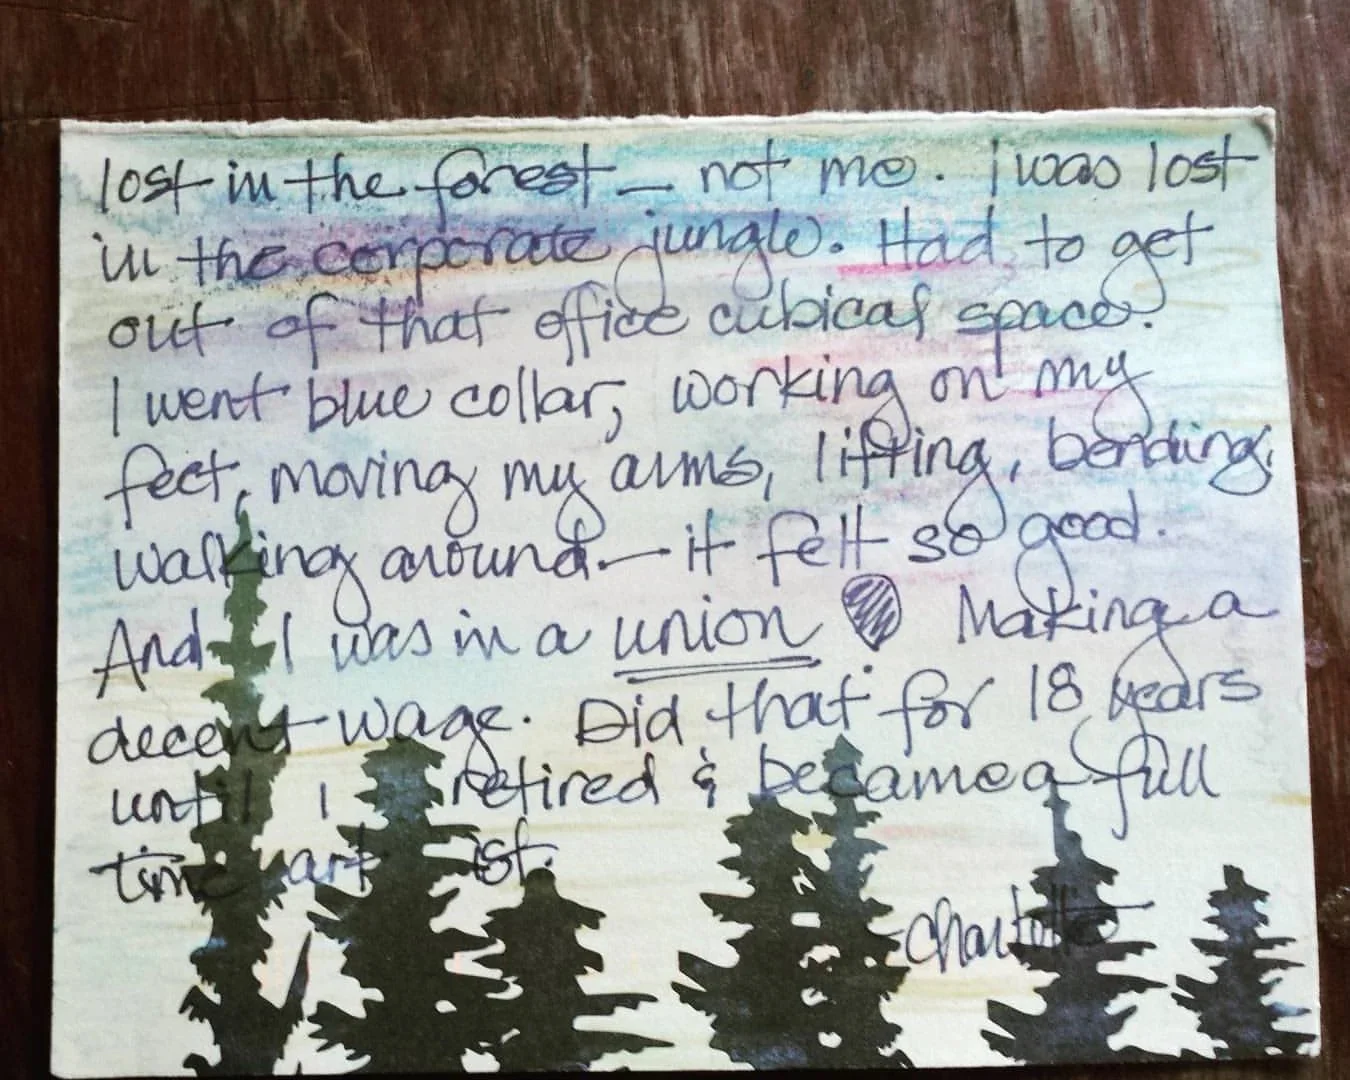 lost in the forest — not me. i was lost
in the corporate jungle. Had to get
out of that office cubical space.
I went blue collar, working on my
feet, moving my arms, lifting, bending,
walking around — it felt so good.
And I was in a union Making a
decent wage. Did that for 18 years
until i retired & became a full
time artist.
- Charlotte